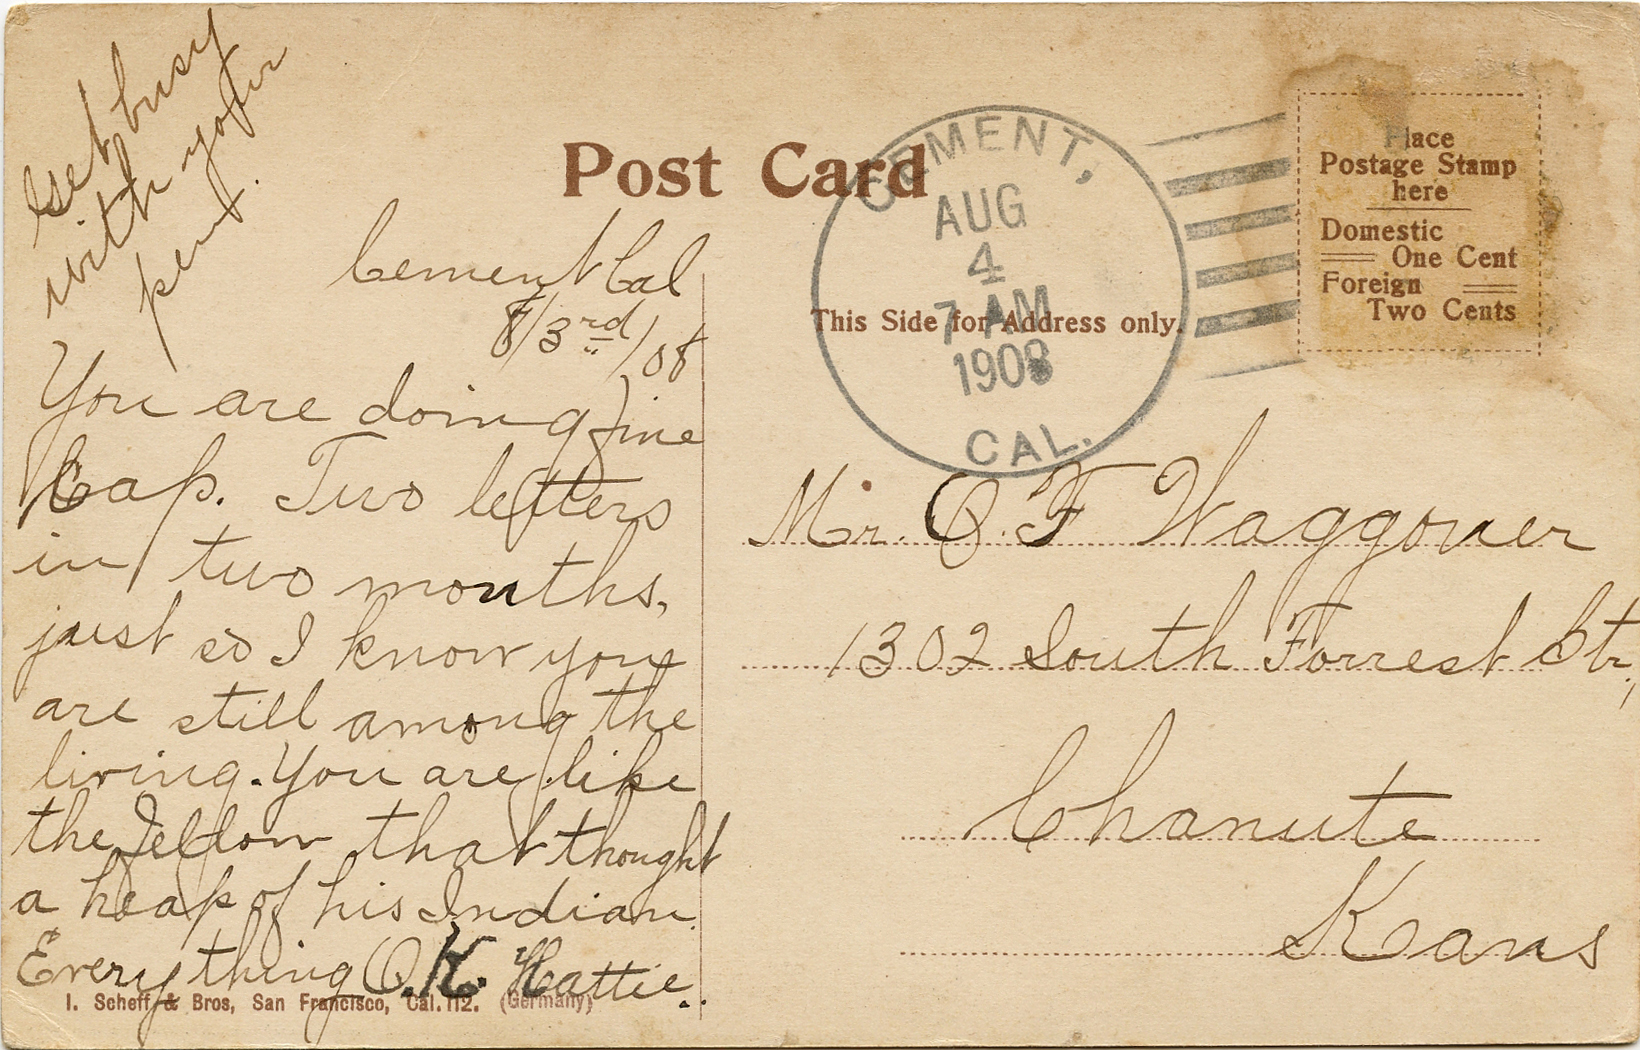 Get busy
with your
pen.
Post Card
CEMENT,
AUG
4
7 AM
1908
CAL.
Place
Postage Stamp
here
Domestic
One Cent
Foreign
Two Cents
This Side for Address only.
Cement Cal
8/3rd/08
You are doing fine
Cap. Two letters
in two months,
just so I know you
are still among the
living. You are like
the fellow that thought
a heap of his Indian.
Everything O.K. Hattie.
Mr. O. F Waggoner
1302 South Forrest Str.,
Chanute
Kans
I. Scheff & Bros, San Francisco, Cal. 112. (Germany)